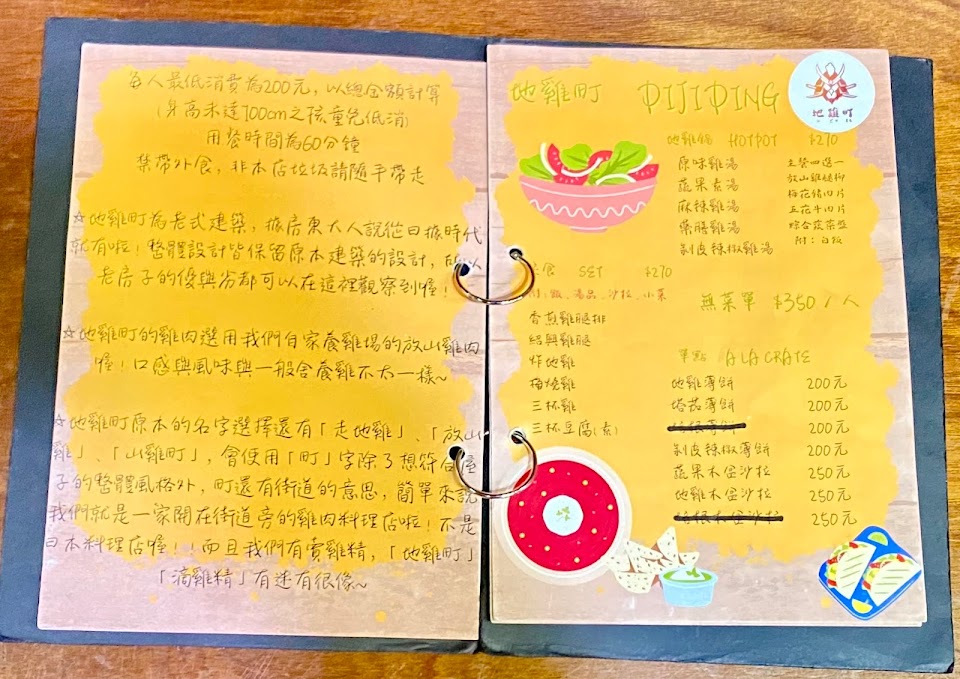 每人最低消費為200元，以總金額計算
(身高未達100cm之孩童免低消)
用餐時間為60分鐘
禁帶外食，非本店垃圾請隨手帶走
☆地雞町為老式建築，據房東大人說從日據時代
就有啦！整體設計皆保留原本建築的設計，所以
老房子的優與劣都可以在這裡觀察到喔！
☆地雞町的雞肉選用我們自家養雞場的放山雞肉
喔！口感與風味與一般舍養雞不太一樣~
☆地雞町原本的名字選擇還有「走地雞」、「放山
雞」、「山雞町」，會使用「町」字除了想符合屋
子的整體風格外，町還有街道的意思，簡單來說
我們就是一家開在街道旁的雞肉料理店啦！不是
日本料理店喔！！而且我們有賣雞精，「地雞町」
「滴雞精」有迷有很像~
地雞町 DIJIDING
地雞町
地雞鍋 HOTPOT $270
原味雞湯
蔬果素湯
麻辣雞湯
藥膳雞湯
剝皮辣椒雞湯
主餐四選一
放山雞腿柳
梅花豬四片
五花牛四片
綜合菇菜盤
附：白飯
食 SET $270
附：飯、湯品、沙拉、小菜
香煎雞腿排
紹興雞腿
炸地雞
梅燒雞
三杯雞
三杯豆腐(素)
無菜單 $350/人
單點 A LA CRATE
地雞薄餅 200元
塔菇薄餅 200元
200元
剝皮辣椒薄餅 200元
蔬果木盆沙拉 250元
地雞木盆沙拉 250元
250元